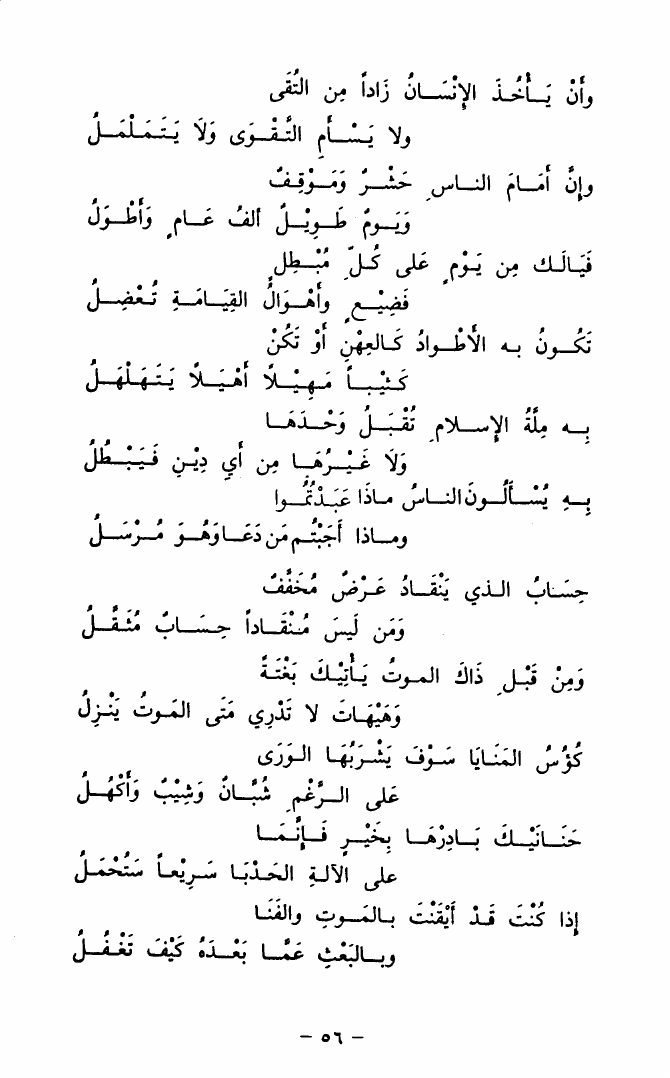 وأَنْ يَأْخُذَ الإِنْسَانُ زَاداً مِن التُّقَى
ولا يَسْأَمِ التَّقْوَى وَلَا يَتَمَلْمَلُ
وإِنَّ أَمَامَ الناسِ حَشْرٌ وَمَوْقِفٌ
وَيَومٌ طَوِيْلٌ ألفُ عَامٍ وَأَطْوَلُ
فَيَالَكَ مِن يَوْمٍ عَلَى كُلِّ مُبْطِلٍ
فَضِيْعٍ وأَهْوَالُ القِيَامَةِ تُعْضِلُ
تَكُونُ به الأَطْوادُ كَالعِهْنِ أَوْ تَكُنْ
كَثِيْباً مَهِيْلاً أَهْيَلاً يَتَهَلْهَلُ
بِه مِلَّةُ الإِسلامِ تُقْبَلُ وَحْدَهَا
وَلَا غَيْرُهَا مِن أَيِ دِيْنٍ فَيَبْطُلُ
بِهِ يُسْأَلُونَ الناسُ ماذَا عَبَدْتُمُوا
وماذا أَجَبْتُم مَن دَعَا وَهُوَ مُرْسَلُ
حِسَابُ الذي يَنْقَادُ عَرْضٌ مُخَفَّفٌ
وَمَن لَيسَ مُنْقَاداً حِسَابٌ مُثَقَّلُ
وَمِنْ قَبْلِ ذَاكَ الموتُ يَأْتِيْكَ بَغْتَةً
وَهَيْهَاتَ لا تَدْرِي مَتَى الموتُ يَنْزِلُ
كُؤُسُ المَنَايَا سَوْفَ يَشْرَبُهَا الوَرَى
على الرَّغْمِ شُبَّانٌ وَشِيْبٌ وَأَكْهُلُ
حَنَانَيْكَ بَادِرْهَا بِخَيْرٍ فَإِنَّمَا
على الآلةِ الحَدْبَا سَرِيْعاً سَتُحْمَلُ
إذا كُنْتَ قَدْ أَيْقَنْتَ بالمَوتِ والفَنَا
وبالبَعْثِ عَمَّا بَعْدَهُ كَيْفَ تَغْفَلُ
- ٥٦ -